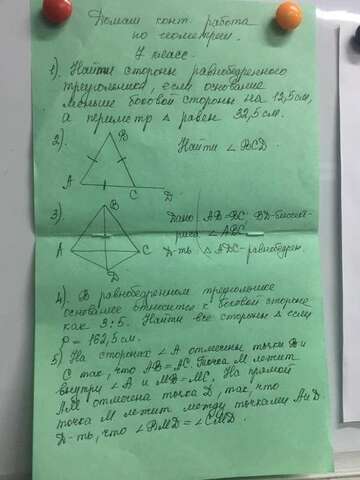 Домаш конт. работа
по геометрии.
7 класс.
1). Найти стороны равнобедренного
треугольника, если основание
меньше боковой стороны на 12,5 см,
а периметр △ равен 32,5 см.
2).
B
A
C
D
Найти ∠ BCD.
3)
B
A
C
D
Дано AB=BC; BD-биссект-
риса ∠ ABC
Д-ть △ ADC-равнобедрен.
4). В равнобедренном треугольнике
основание относится к боковой стороне
как 3:5. Найти все стороны △ если
P = 162,5 см.
5) На сторонах ∠ A отмечены точки B и
C так, что AB = AC. Точка M лежит
внутри ∠ A и MB = MC. На прямой
AM отмечена точка D, так, что
точка M лежит между точками A и D.
Д-ть, что ∠ BMD = ∠ CMD.